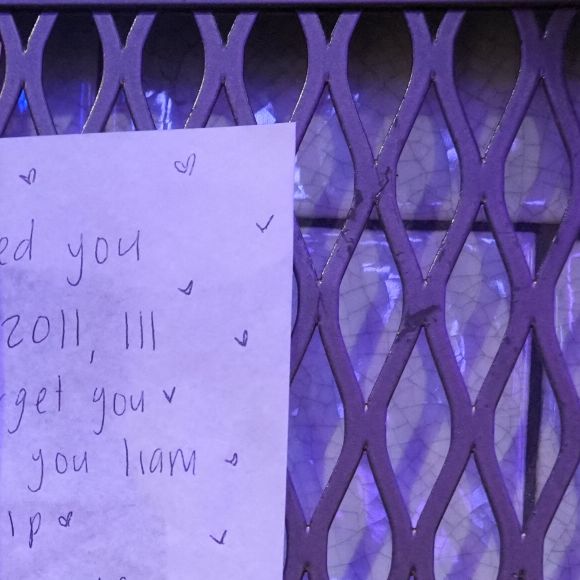 ed you
2011, Ill
get you
you liam
ip